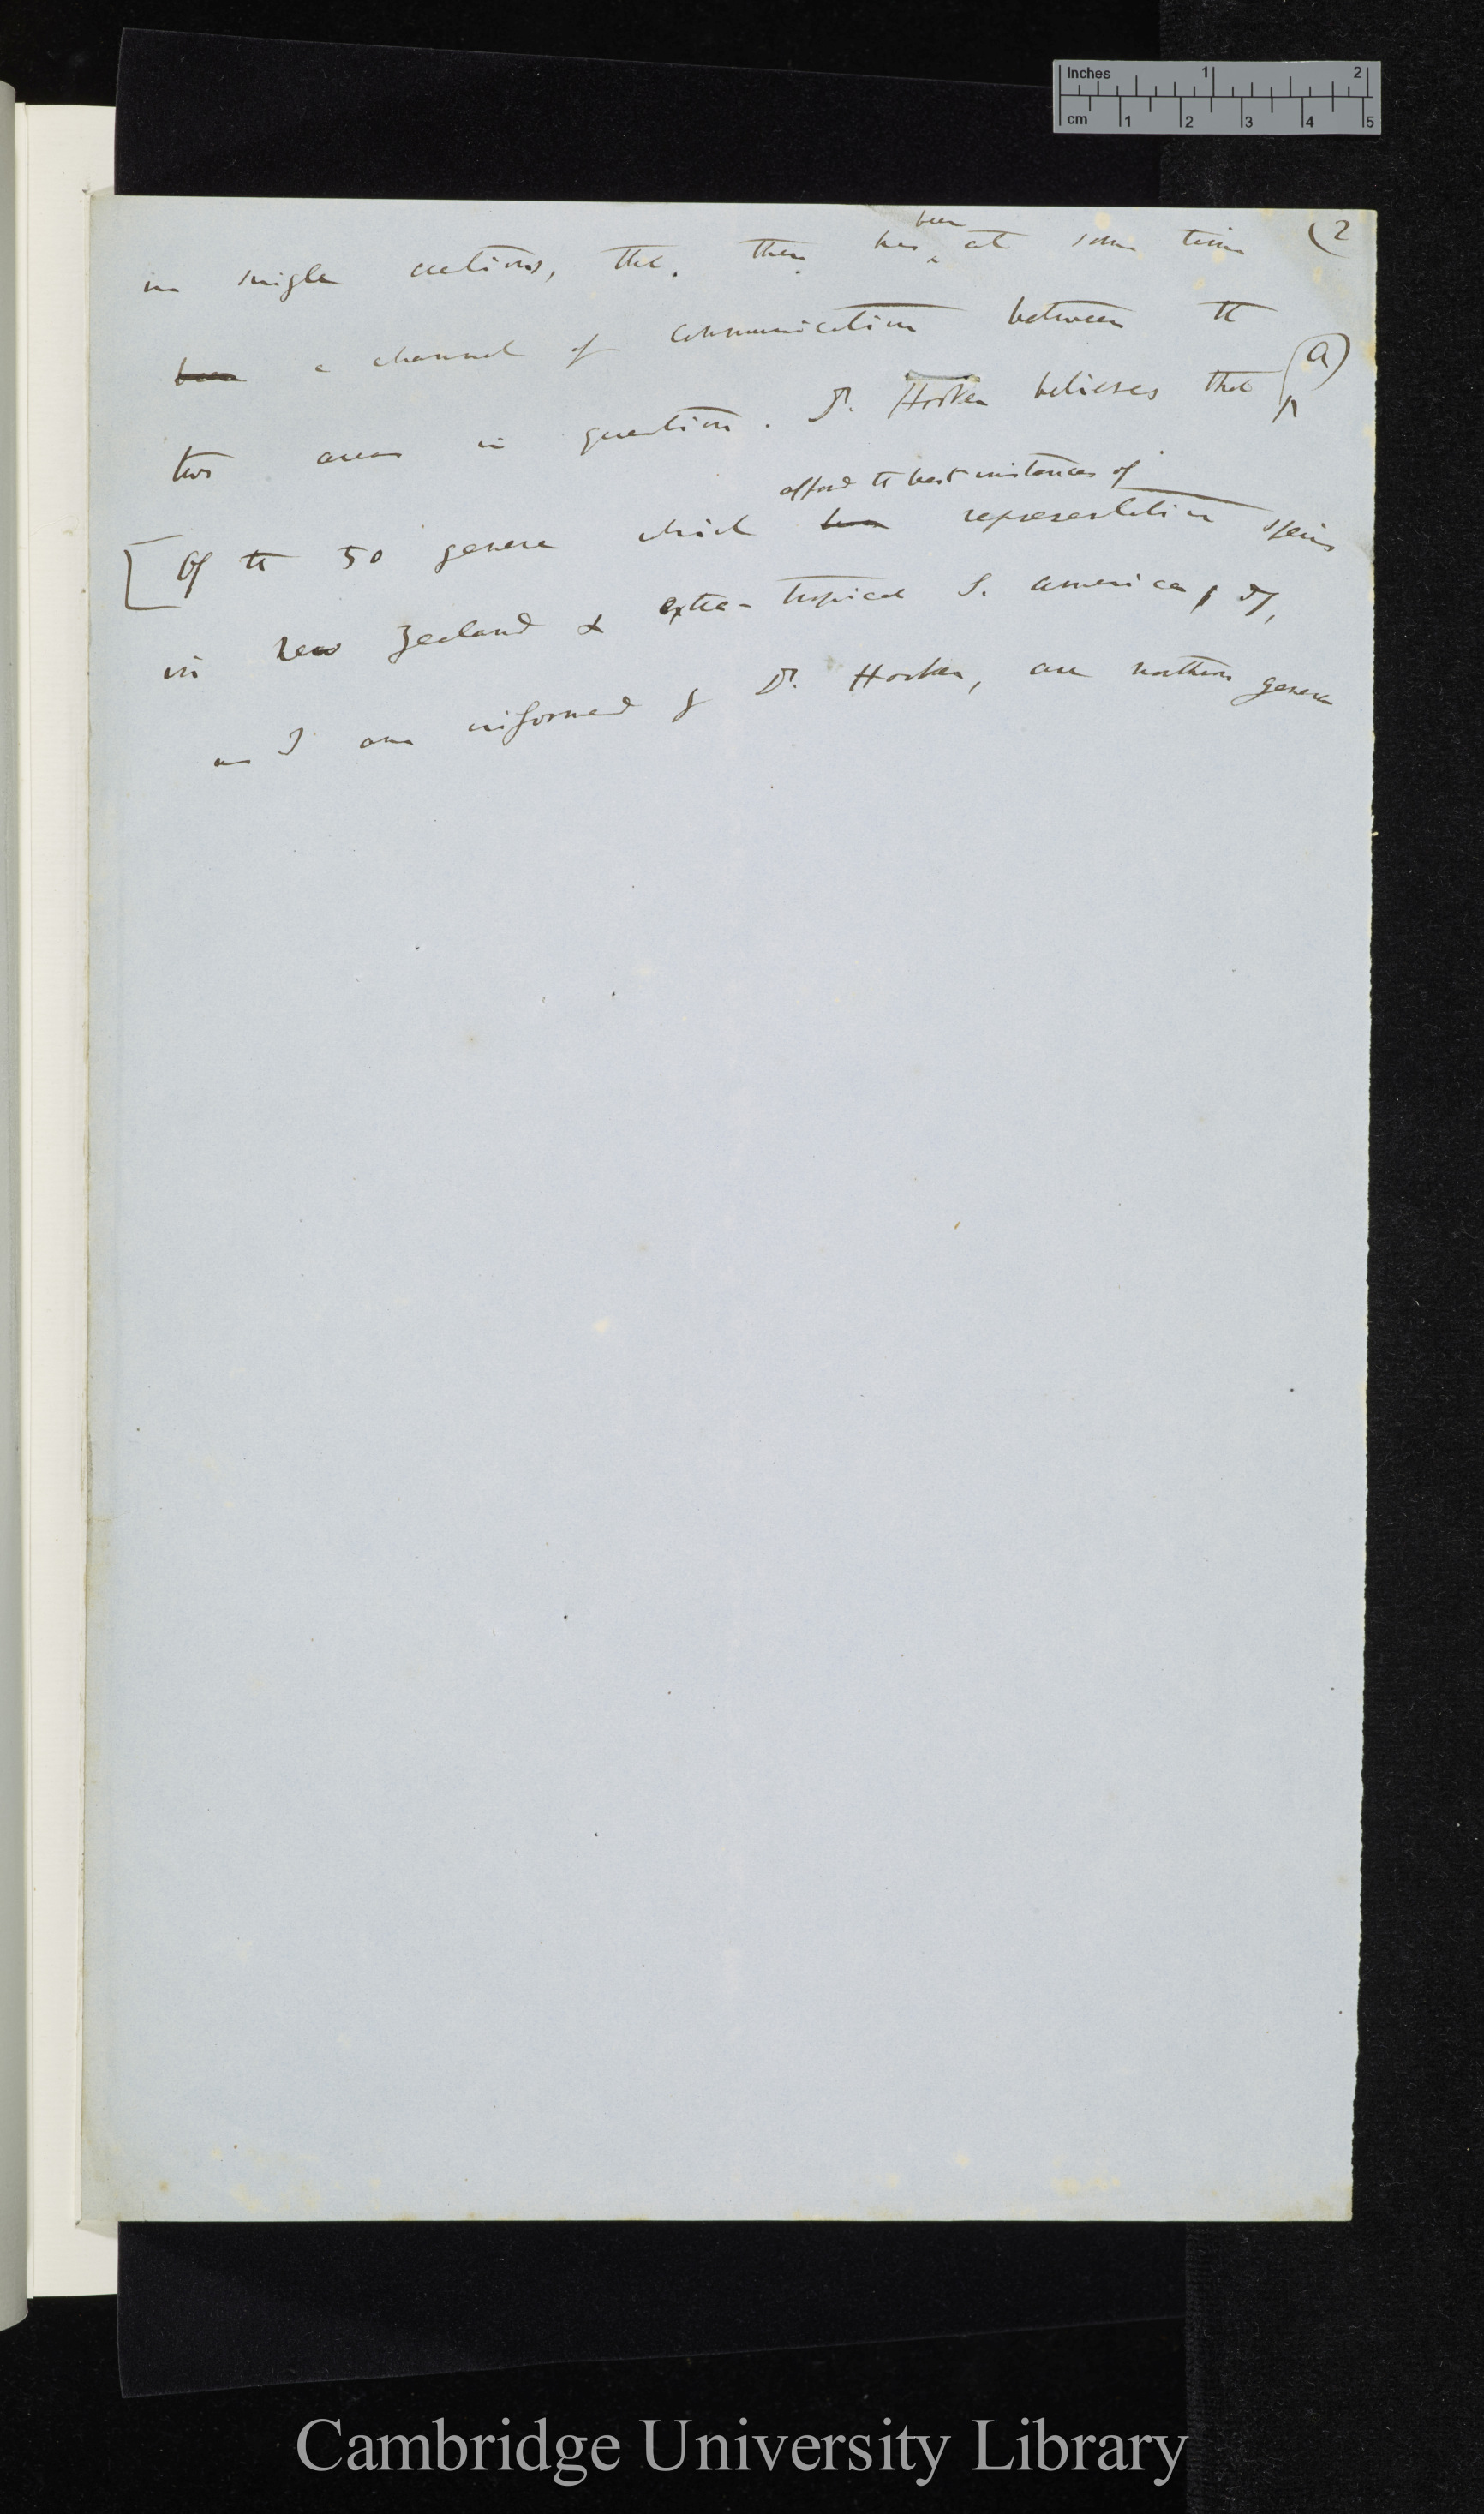 Inches 1 2
cm 1 2 3 4 5
(2
been
in single creations, that, there has ^ at some time
been a channel of communication between the
(a)
two areas in question. Dr. Hooker believes that
afford the best instances of
[Of the 50 genera which have representative species
in New Zealand & extra-tropical S. America,
as I am informed by Dr. Hooker, are northern genera
Cambridge University Library